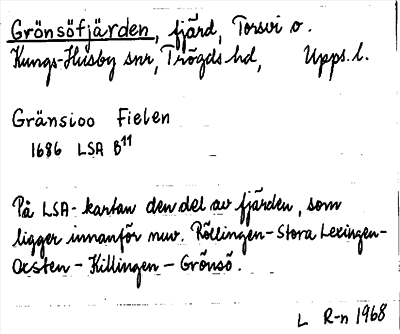 Grönsöfjärden, fjärd, Torsvi o.
Kungs-Husby snr, Trögds hd, Upps. l.
Gränsioo Fielen
1686 LSA B11
På LSA-kartan den del av fjärden, som
ligger innanför nuv. Röllingen-Stora Lexingen-
Oxsten - Killingen - Grönsö.
L R-n 1968